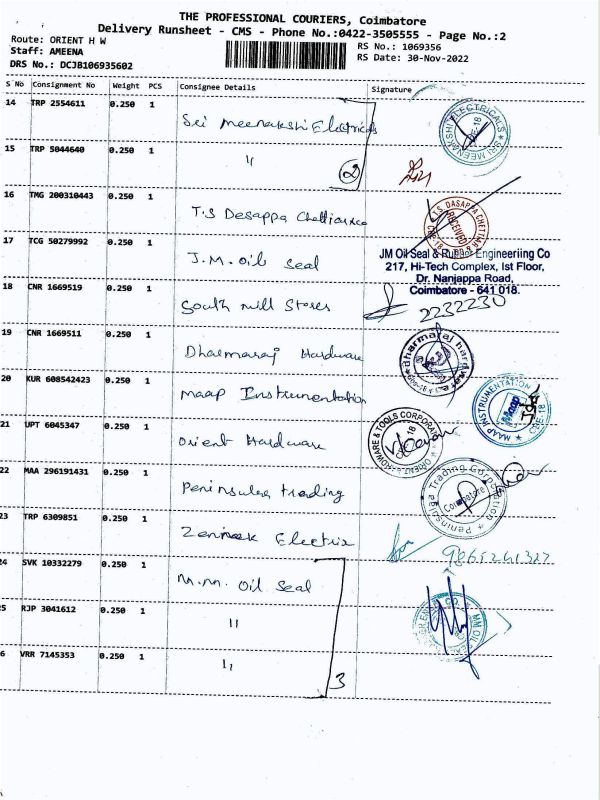 THE PROFESSIONAL COURIERS, Coimbatore
Delivery Runsheet - CMS - Phone No.:0422-3505555 - Page No.:2
Route: ORIENT H W
Staff: AMEENA
DRS No.: DCJB106935602
RS No.: 1069356
RS Date: 30-Nov-2022
S No Consignment No Weight PCS Consignee Details Signature
14 TRP 2554611 0.250 1 Sri Meenakshi Electricals
SRI MEENAKSHI ELECTRICALS
15 TRP 5044640 0.250 1 "
2
16 TMG 200310443 0.250 1 T.S Desappa Chettiar&co
T.S. DASAPPA CHETTIAR &
RECEIVED
17 TCG 50279992 0.250 1 J.M. oil Seal
JM Oil Seal & Rubber Engineeriing Co
217, Hi-Tech Complex, Ist Floor,
Dr. Nanjappa Road,
Coimbatore - 641 018.
18 CNR 1669519 0.250 1 South mill Stores
2232230
19 CNR 1669511 0.250 1 Dharmaraj Hardware
dharmaraj hardware
20 KUR 608542423 0.250 1 maap Instrumentation
MAAP INSTRUMENTATION
Maap
CBE-18
21 UPT 6045347 0.250 1 Orient Hardware
ORIENT HARDWARE & TOOLS CORPORATION
22 MAA 296191431 0.250 1 Peninsular trading
Peninsular Trading Corporation
Coimbatore
23 TRP 6309851 0.250 1 Electrix
24 SVK 10332279 0.250 1 M.M. Oil Seal
MM OIL
25 RJP 3041612 0.250 1 "
26 VRR 7145353 0.250 1 "
3